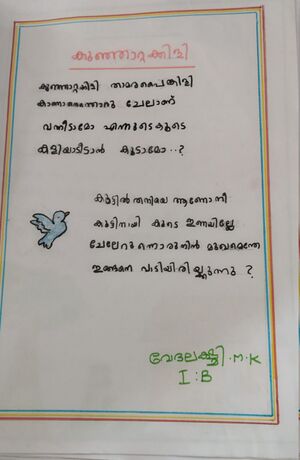 കുഞ്ഞാറ്റക്കിളി
കുഞ്ഞാറ്റക്കിളി താമരപൈങ്കിളി
കാണാനെന്തൊരു ചേലാണ്
വന്നീടാമോ എന്നുടെകൂടെ
കളിയാടീടാൻ കൂടാമോ..?
കൂട്ടിൽ തനിയെ ആണോ നീ
കൂട്ടിനായി കൂടെ ഇണയില്ലേ
ചേലേറുന്നൊരുനിൻ മുഖമെന്തേ
ഇങ്ങനെ വാടിയിരിയ്ക്കുന്നു ?
വേദലക്ഷ്മി.M.K
I:B